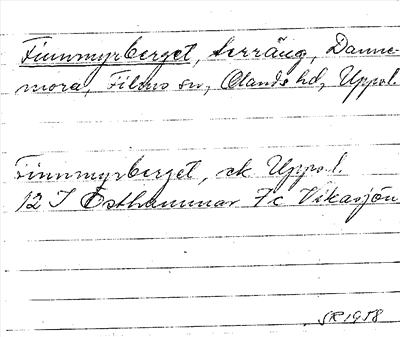 Finnmyrberget, terräng, Danne-
mora, Films sn, Olands hd, Uppl.
Finnmyrberget, ek Uppsl.
12 I Östhammar 7c Vikasjön
SR 1958